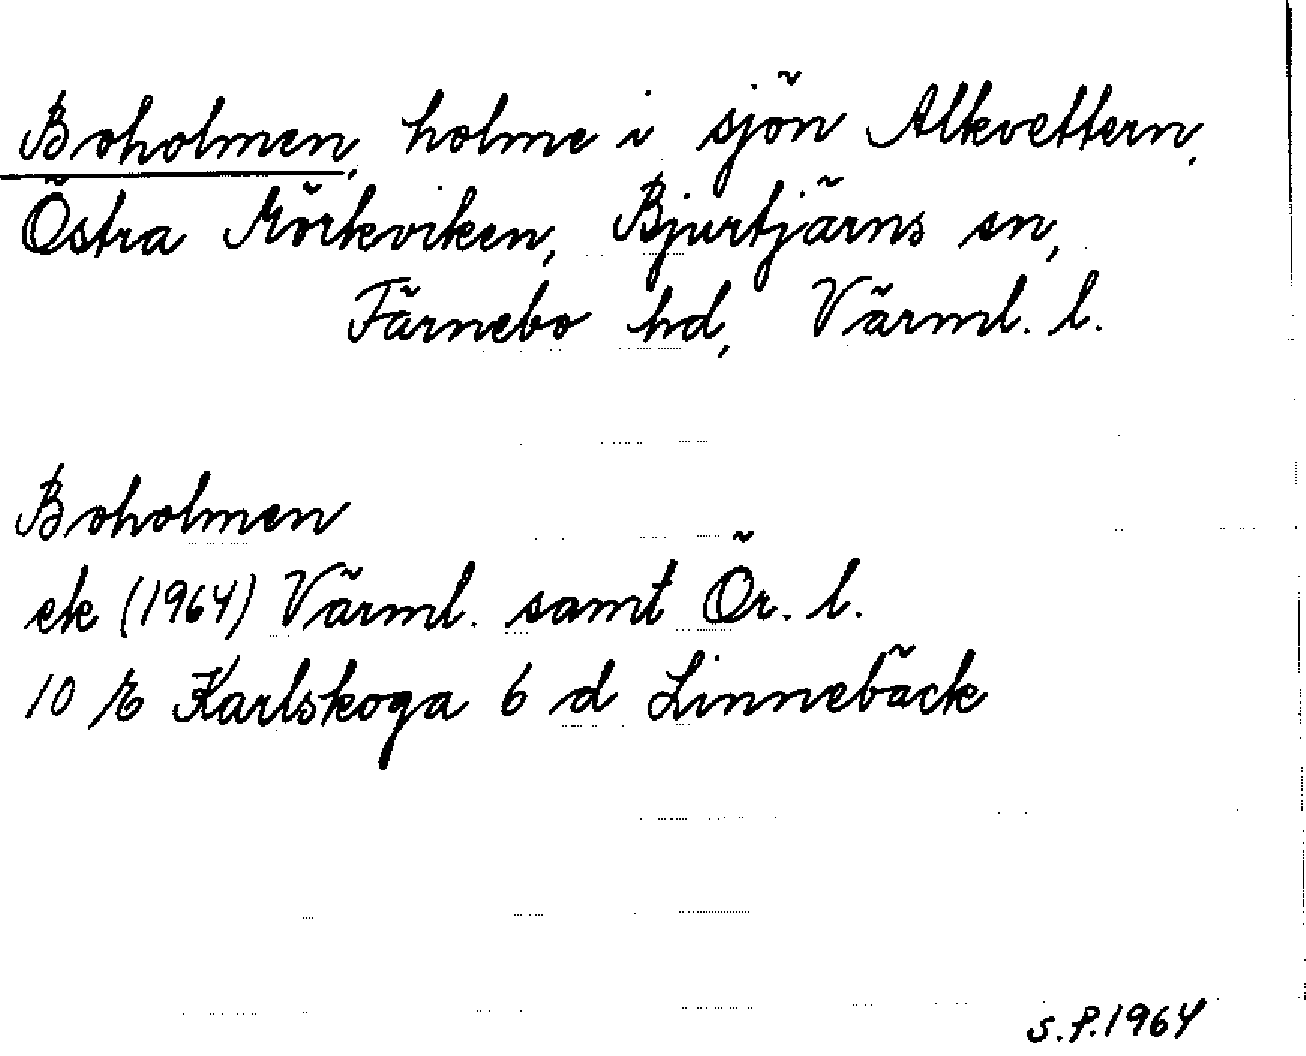 Boholmen, holme i sjön Alkvettern,
Östra Mörkviken, Bjurtjärns sn,
Färnebo hd, Värml. l.
Boholmen
ek (1964) Värml. samt Ör. l.
10 E Karlskoga 6 d Linnebäck
S.P.1964